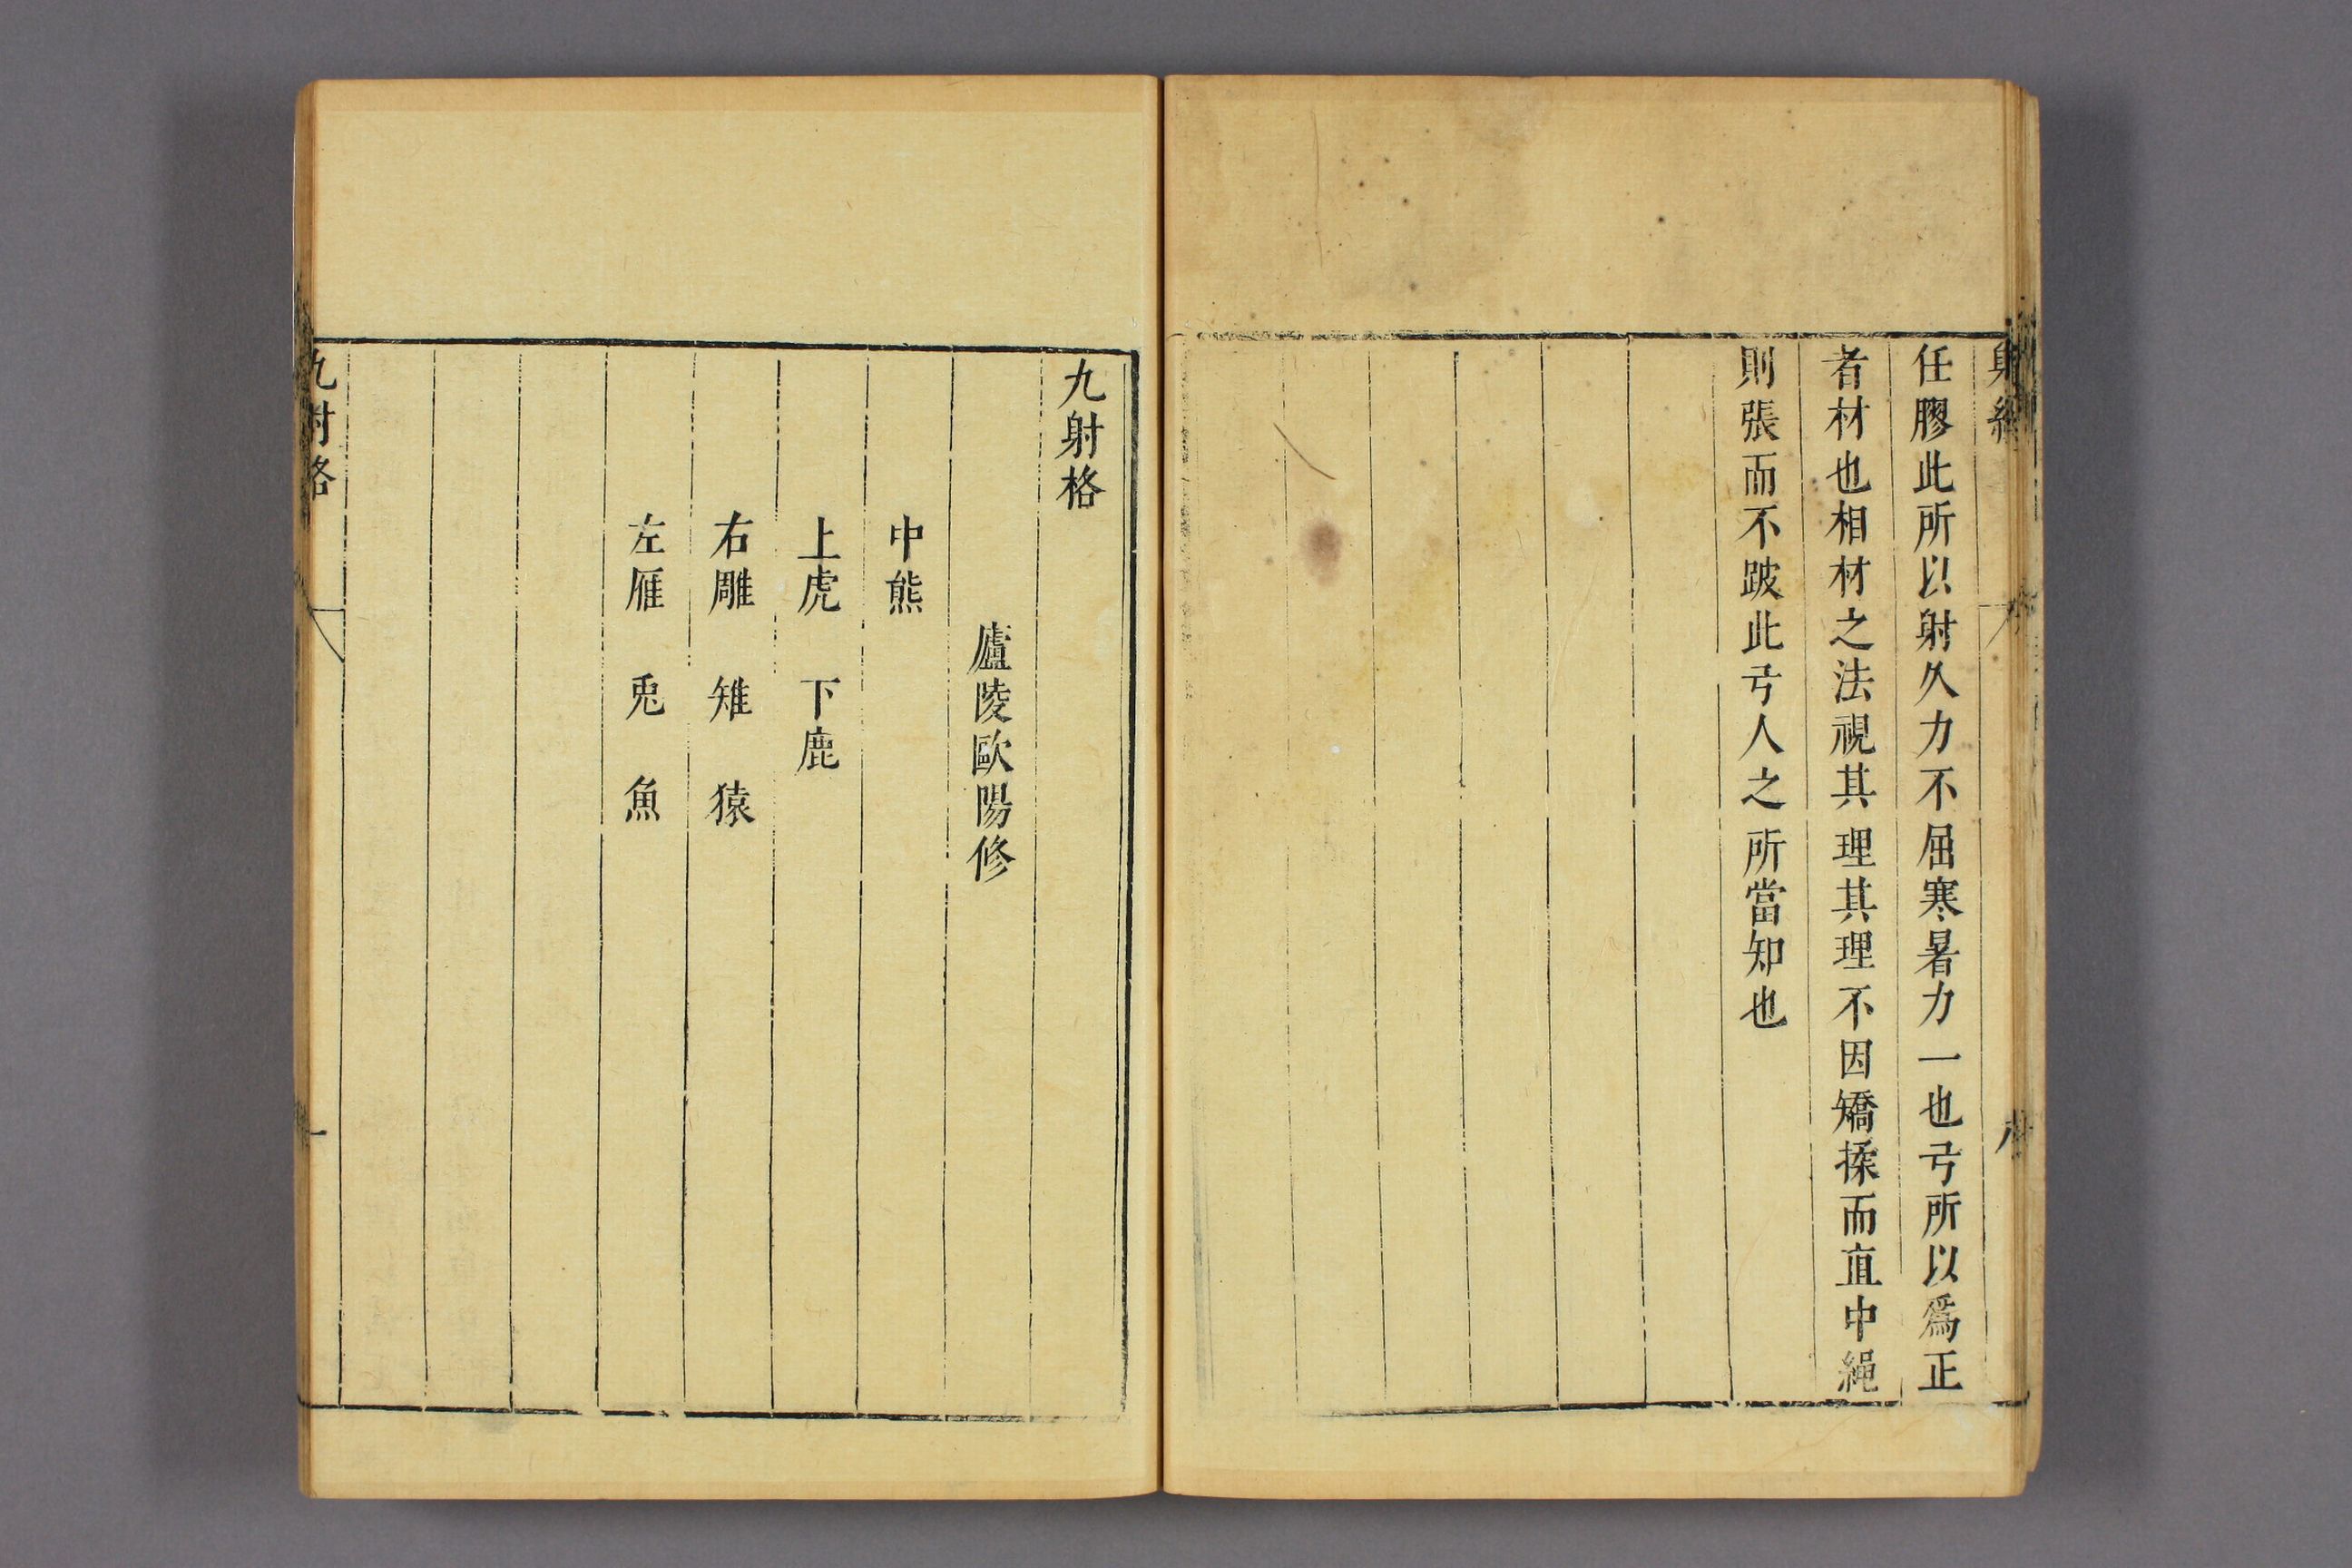 射經
八
任膠此所以射久力不屈寒暑力一也弓所以爲正
者材也相材之法視其理其理不因矯揉而直中繩
則張而不跛此弓人之所當知也
九射格
廬陵歐陽修
中熊
上虎　下鹿
右雕　雉　猿
左雁　兎　魚
九射格
一